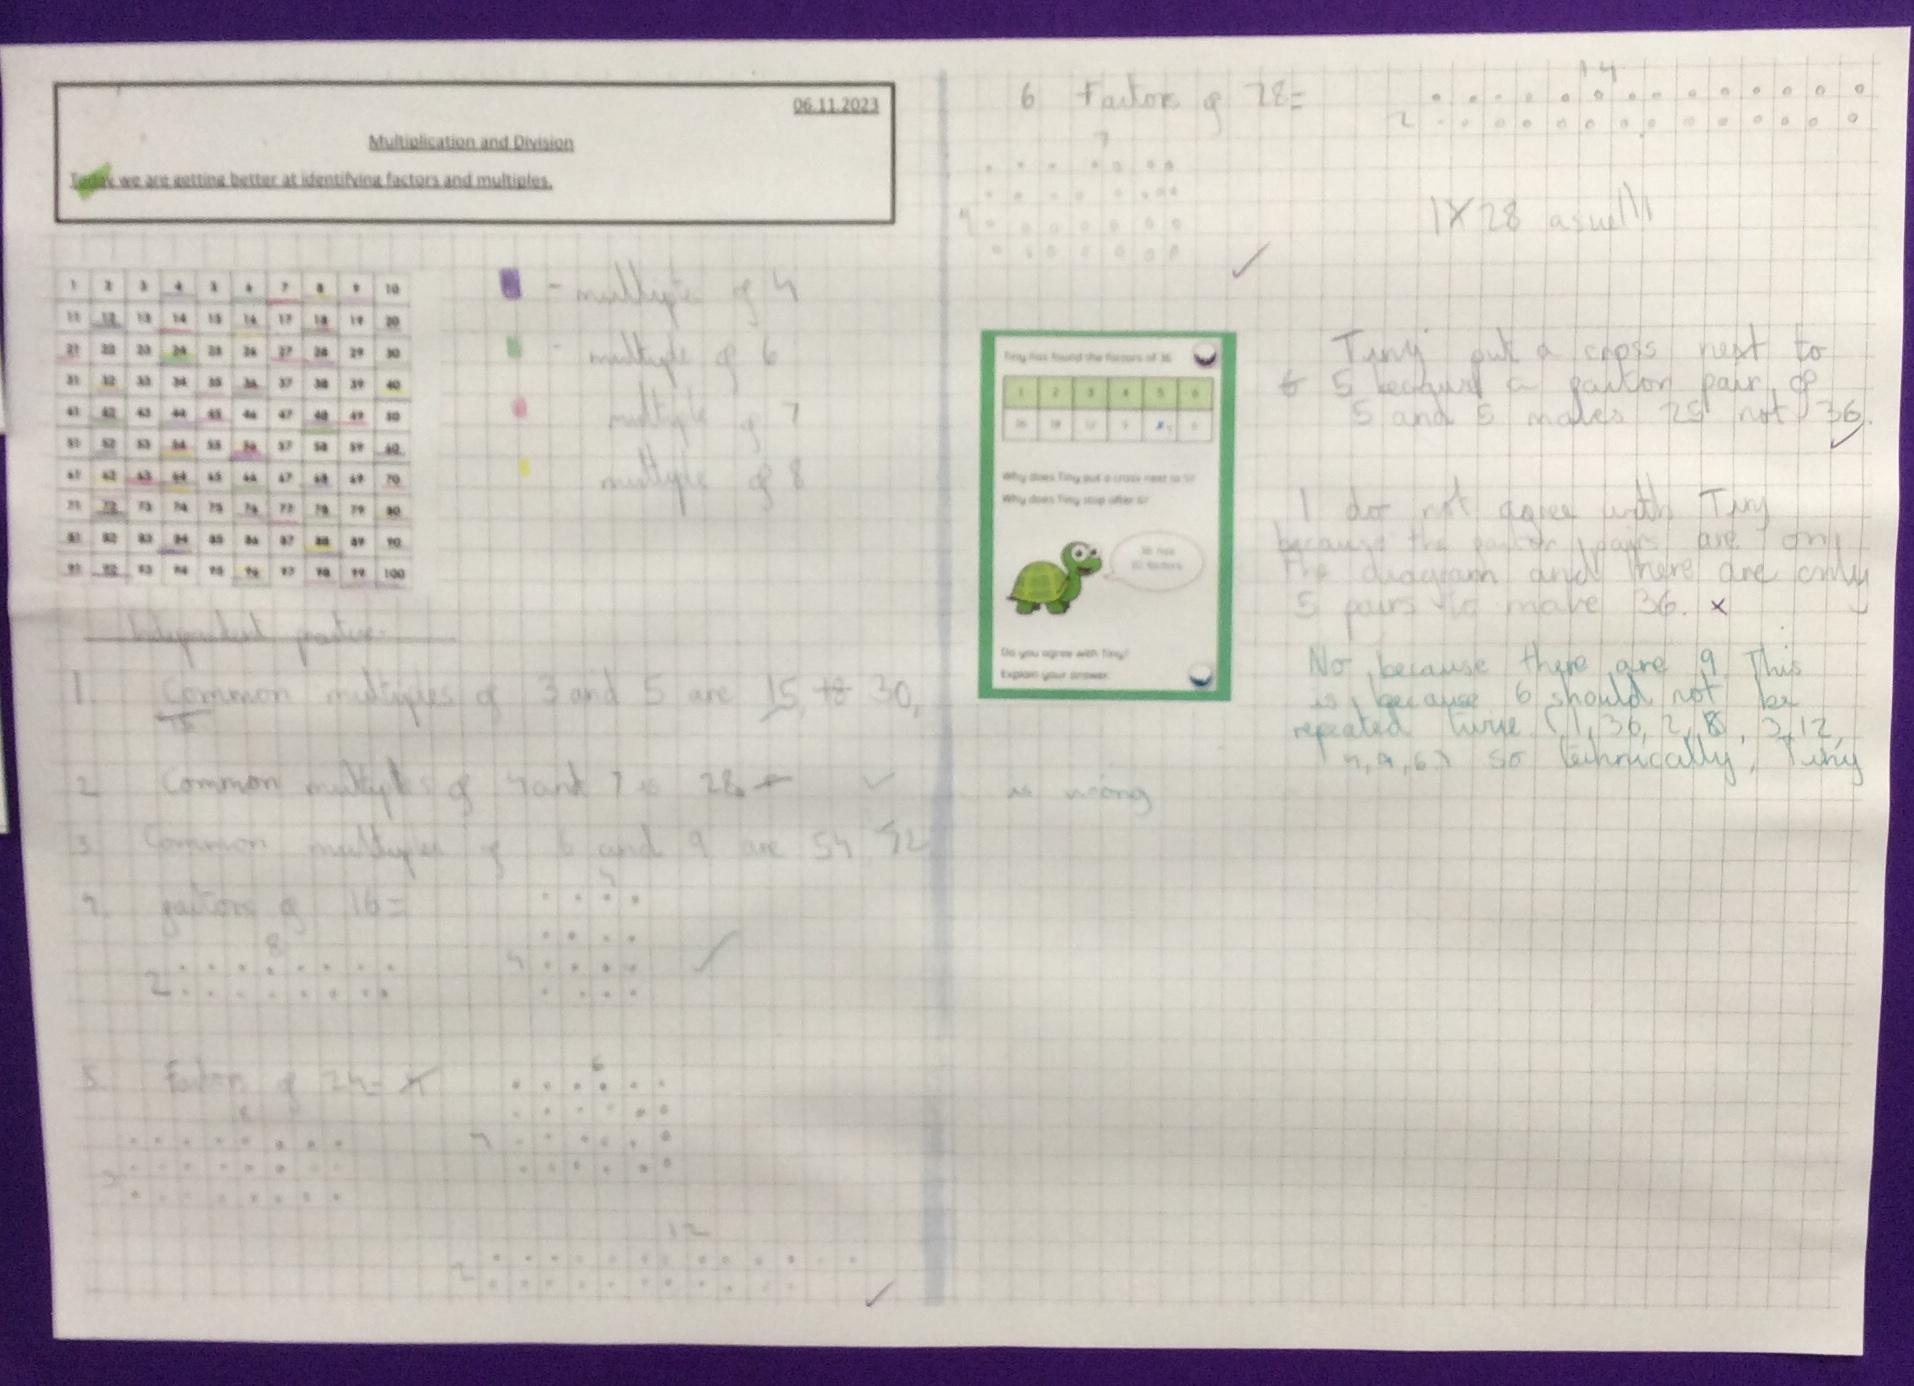 06.11.2023
Multiplication and Division
Today we are getting better at identifying factors and multiples.
1 2 3 4 5 6 7 8 9 10
11 12 13 14 15 16 17 18 19 20
21 22 23 24 25 26 27 28 29 30
31 32 33 34 35 36 37 38 39 40
41 42 43 44 45 46 47 48 49 50
51 52 53 54 55 56 57 58 59 60
61 62 63 64 65 66 67 68 69 70
71 72 73 74 75 76 77 78 79 80
81 82 83 84 85 86 87 88 89 90
91 92 93 94 95 96 97 98 99 100
- multiple of 4
- multiple of 6
multiple of 7
multiple of 8
Independent practice
1. Common multiples of 3 and 5 are 15, 30,
15
2 Common multiples of 4 and 7 is 28.
3 Common multiples of 6 and 9 are 54, 72
4. factors of 16=
8
2
4
4
5. Factors of 24=
8
3
6
4
12
2
6 Factors of 28=
14
2
7
4
1X28 aswell!!
Tiny has found the factors of 36
1 2 3 4 5 6
36 18 12 9 6
Why does Tiny put a cross next to 5?
Why does Tiny stop after 6?
36 has
10 factors
Do you agree with Tiny?
Explain your answer.
Tiny put a cross next to
5 because a factor pair of
5 and 5 makes 25 not 36.
I do not agree with Tiny
because the factor pairs are on
the diagram and there are only
5 pairs to make 36.
No because there are 9. This
is because 6 should not be
repeated twice (1, 36, 2, 18, 3, 12,
4, 9, 6) so technically, Tiny
is wrong